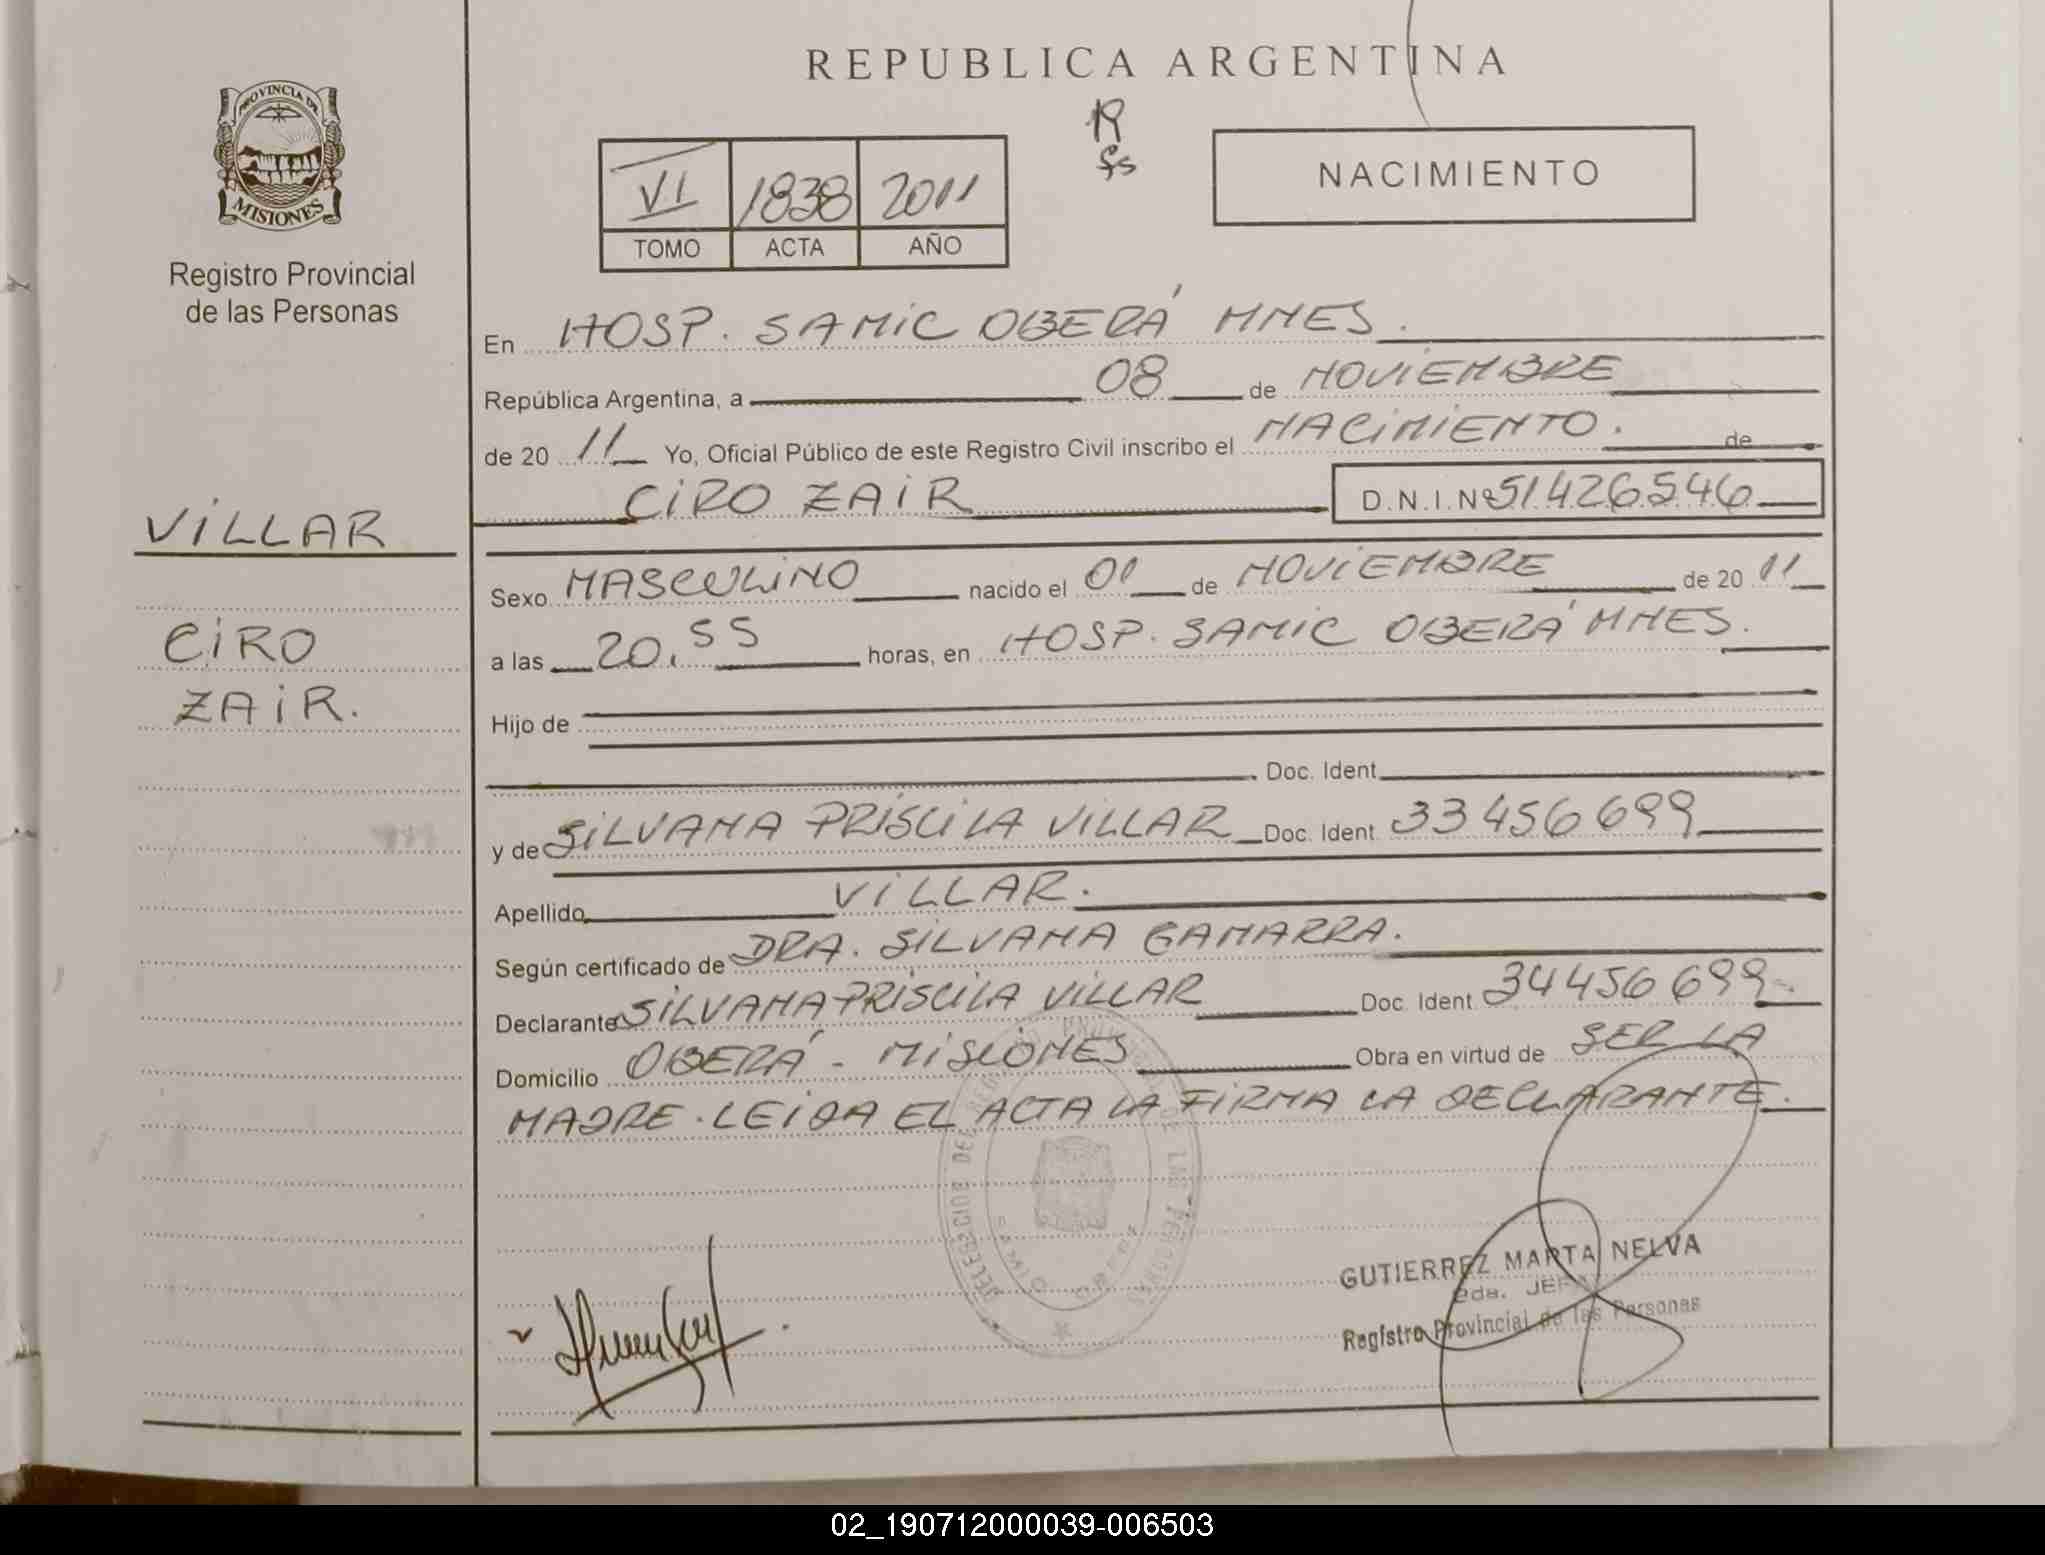 REPUBLICA ARGENTINA
PROVINCIA DE
MISIONES
Registro Provincial
de las Personas
VI 1838 2011
TOMO ACTA AÑO
NACIMIENTO
VILLAR
CIRO
ZAIR.
En HOSP. SAMIC OBERÁ MNES.
República Argentina, a 08 de NOVIEMBRE
de 20 11 Yo, Oficial Público de este Registro Civil inscribo el NACIMIENTO. de
CIRO ZAIR D.N.I.Nº 51.426.546
Sexo MASCULINO nacido el 01 de NOVIEMBRE de 20 11
a las 20.55 horas, en HOSP. SAMIC OBERÁ MNES.
Hijo de
Doc. Ident.
y de SILVANA PRISCILA VILLAR Doc. Ident. 33456699
Apellido VILLAR.
Según certificado de DRA. SILVANA GAMARRA.
Declarante SILVANA PRISCILA VILLAR Doc. Ident. 34456699
Domicilio OBERÁ - MISIONES Obra en virtud de SER LA
MADRE. LEIDA EL ACTA LA FIRMA LA DECLARANTE.
GUTIERREZ MARTA NELVA
2da. JEFA
Registro Provincial de las Personas
02_190712000039-006503